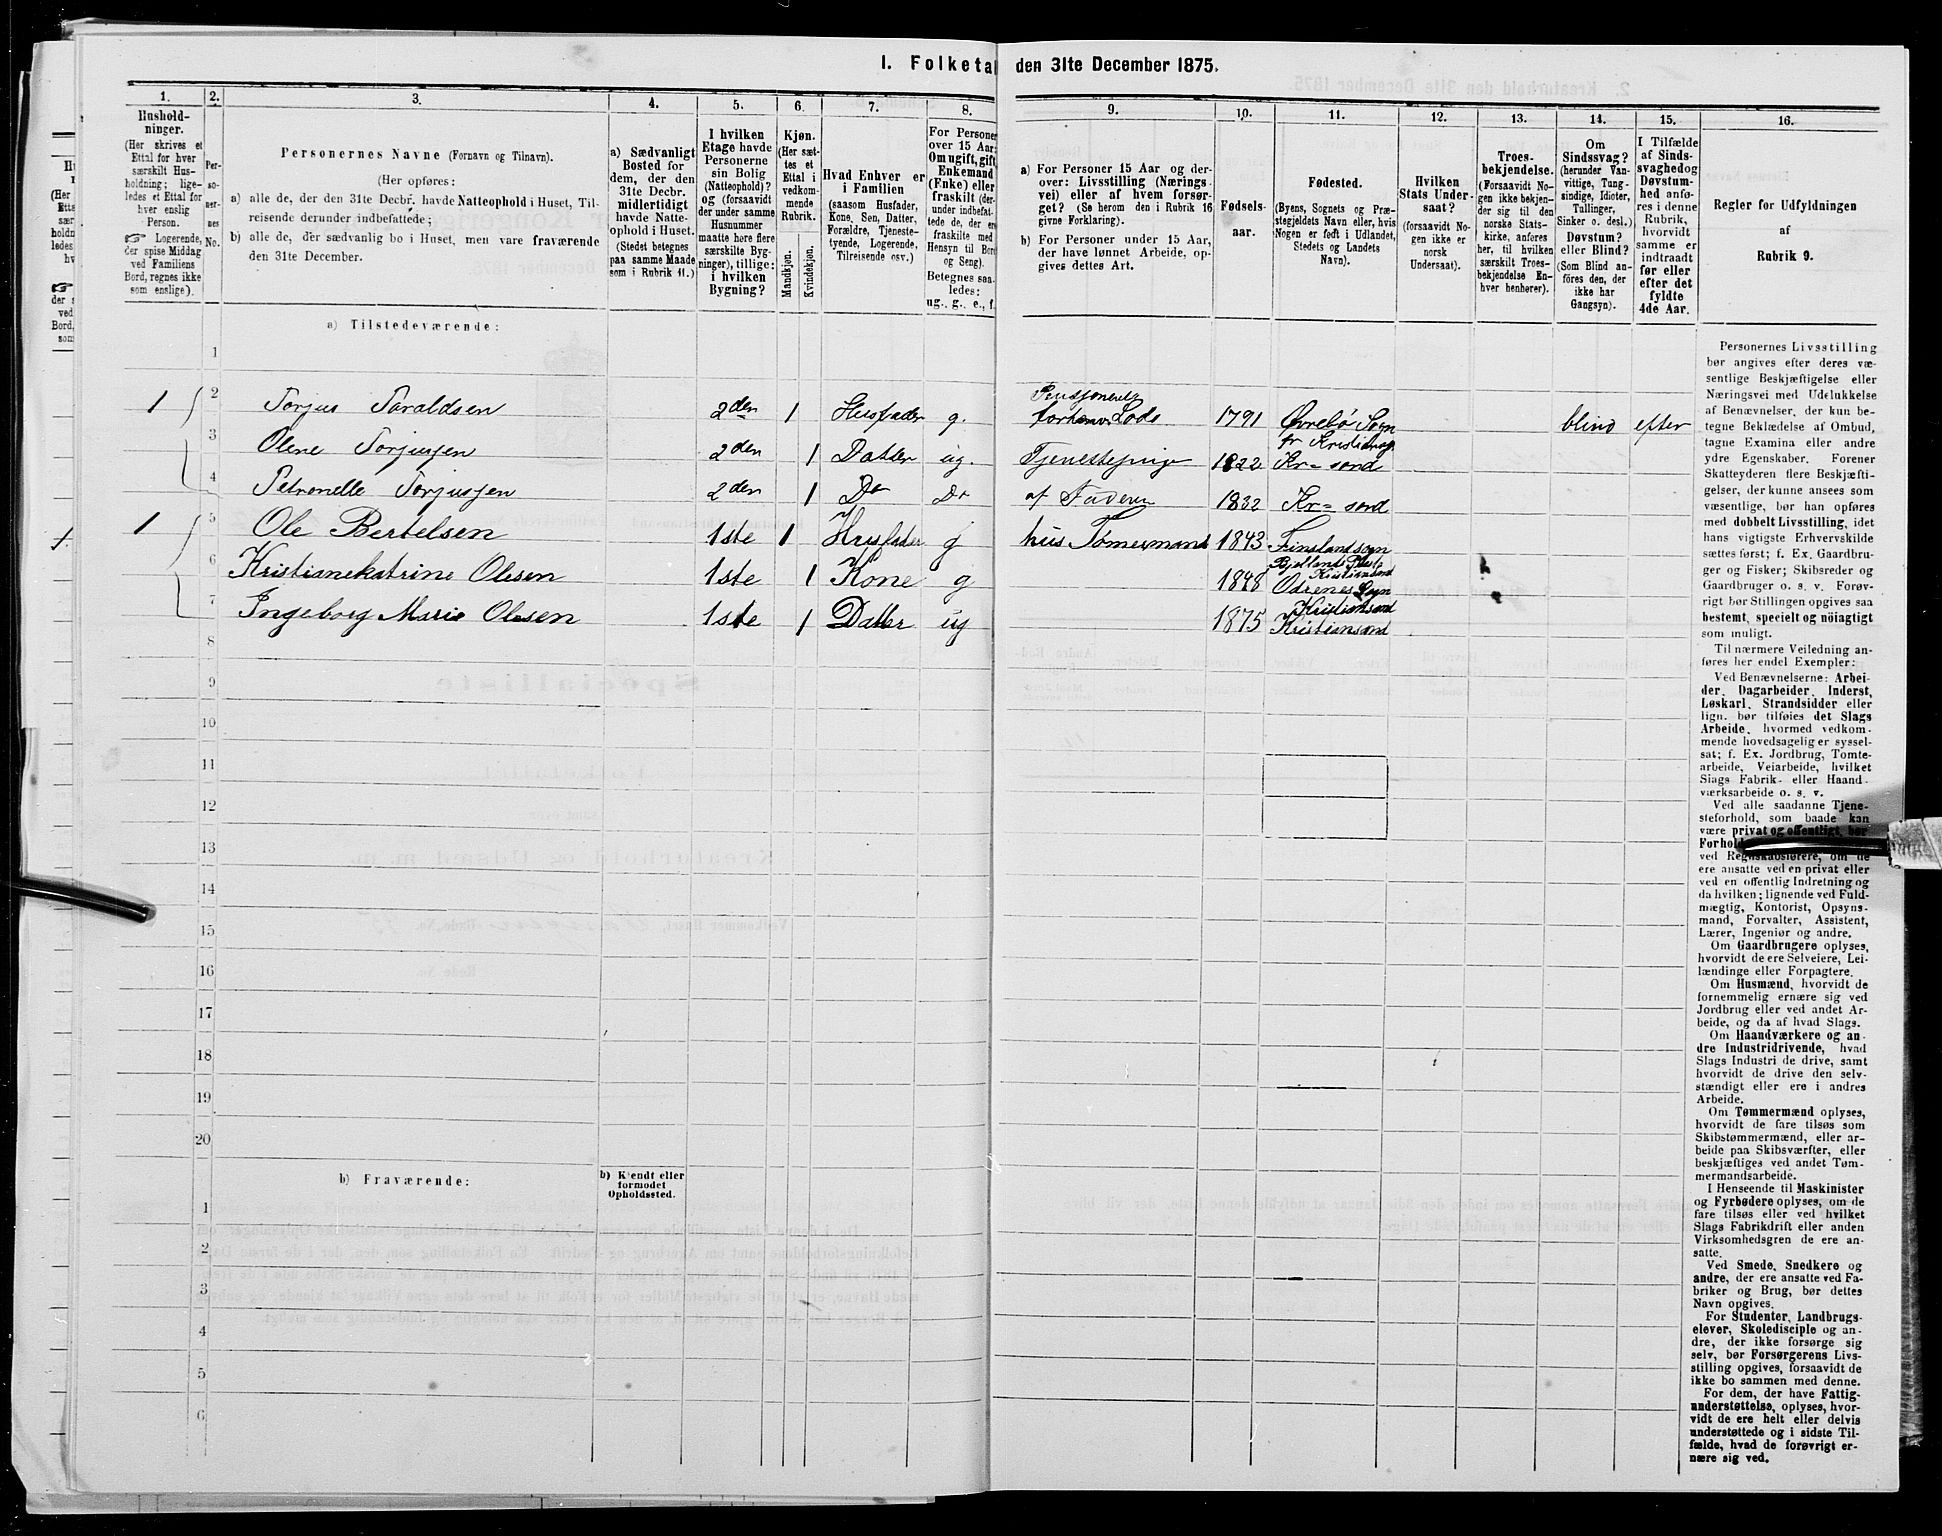 1. Folketal den 31te December 1875.
1. 2. 3. 4. 5. 6. 7. 8. 9. 10. 11. 12. 13. 14. 15. 16.
Hushold-
ninger.
(Her skrives et
Ettal for hver
særskilt Hus-
holdning; lige-
ledes et Ettal for
hver enslig
Person.
☞ Logerende,
der spise Middag
ved Familiens
Bord, regnes ikke
som enslige).
Per-
so-
ner-
nes
No.
Personernes Navne (Fornavn og Tilnavn).
(Her opføres:
a) alle de, der den 31te Decbr. havde Natteophold i Huset, Til-
reisende derunder indbefattede;
b) alle de, der sædvanlig bo i Huset, men vare fraværende
den 31te December.
a) Sædvanligt
Bosted for
dem, der den
31te Decbr.
midlertidigt
havde Natte-
ophold i Huset.
(Stedet betegnes
paa samme Maade
som i Rubrik 11.)
I hvilken
Etage havde
Personerne
sin Bolig
(Natteophold)?
og (forsaavidt
der under samme
Husnummer
maatte høre flere
særskilte Byg-
ninger), tillige:
i hvilken
Bygning?
Kjøn.
(Her sæt-
tes et
Ettal i
vedkom-
mende
Rubrik.
Mandkjøn.
Kvindekjøn.
Hvad Enhver er
i Familien
(saasom Husfader,
Kone, Søn, Datter,
Forældre, Tjeneste-
tyende, Logerende,
Tilreisende osv.)
For Personer
over 15 Aar:
Om ugift, gift,
Enkemand
(Enke) eller
fraskilt (der-
under indbefat-
tede de, der ere
fraskilte med
Hensyn til Bord
og Seng).
Betegnes saa-
ledes:
ug., g., e., f.
a) For Personer 15 Aar og der-
over: Livsstilling (Nærings-
vei) eller af hvem forsør-
get? (Se herom den i Rubrik 16
givne Forklaring).
b) For Personer under 15 Aar,
der have lønnet Arbeide, op-
gives dettes Art.
Fødsels-
aar.
Fødested.
(Byens, Sognets og Præ-
stegjeldets Navn eller, hvis
Nogen er født i Udlandet,
Stedets og Landets
Navn).
Hvilken
Stats Under-
saat?
(forsaavidt No-
gen ikke er
norsk
Undersaat).
Troes-
bekjendelse.
(Forsaavidt No-
gen ikke bekjen-
der sig til den
norske Stats-
kirke, anføres
her, til hvilken
særskilt Troes-
bekjendelse En-
hver henhører).
Om
Sindssvag?
(herunder Van-
vittige, Tung-
sindige, Idioter,
Tullinger,
Sinker o. desl.)
Døvstum?
eller Blind?
(Som Blind an-
føres den, der
ikke har
Gangsyn).
I Tilfælde
af Sinds-
svaghed og
Døvstum-
hed anfø-
res i denne
Rubrik,
hvorvidt
samme er
indtraadt
før eller
efter det
fyldte
4de Aar.
Regler for Udfyldningen
af
Rubrik 9.
a) Tilstedeværende:
1
1 2 Torjus Taraldsen 2den 1 Husfader g. Pensjoneret forhenv Lods 1791 Øvrebø Sogn blind efter
3 Olene Torjusjen 2den 1 Datter ug. Tjenestepige 1822 Kr=sand
4 Petronelle Torjusjen 2den 1 Do Do af Faderen 1832 Kr=sand
1 5 Ole Bertelsen 1ste 1 Husfader g hus Tømermand 1843 Finsland sogn
6 Kristianekatrine Olesen 1ste 1 Kone g 1848 Odrenes Sogn
Kristiansand
7 Ingeborg Marie Olesen 1ste 1 Datter ug 1875 Kristiansand
8
9
10
11
12
13
14
15
16
17
18
19
20
b) Fraværende:
b) Kjendt eller
formodet
Opholdssted.
1
2
3
4
5
6
Personernes Livsstilling
bør angives efter deres væ-
sentlige Beskjæftigelse eller
Næringsvei med Udelukkelse
af Benævnelser, der kun be-
tegne Beklædelse af Ombud,
tagne Examina eller andre
ydre Egenskaber. Forener
Skatteyderen flere Beskjæfti-
gelser, der kunne ansees som
væsentlige, bør han opføres
med dobbelt Livsstilling, idet
hans vigtigste Erhvervskilde
sættes først; f. Ex. Gaardbru-
ger og Fisker; Skibsreder og
Gaardbruger o. s. v. Forøv-
rigt bør Stillingen opgives saa
bestemt, specielt og nöiagtigt
som muligt.
Til nærmere Veiledning an-
føres her endel Exempler:
Ved Benævnelserne: Arbei-
der, Dagarbeider, Inderst,
Løskarl, Strandsidder eller
lign. bør tilføies det Slags
Arbeide, hvormed vedkom-
mende hovedsagelig er syssel-
sat; f. Ex. Jordbrug, Tomte-
arbeide, Veiarbeide, hvilket
Slags Fabrik- eller Haand-
værksarbeide o. s. v.
Ved alle saadanne Tjene-
steforhold, som baade kan
være privat og offentligt, bør
Forhold
ved Regnskabsførere, om de
ere ansatte ved en privat eller
ved en offentlig Indretning og
da hvilken; lignende ved Fuld-
mægtig, Kontorist, Opsyns-
mand, Forvalter, Assistent,
Lærer, Ingeniør og andre.
Om Gaardbrugere oplyses,
hvorvidt de ere Selveiere, Lei-
lændinge eller Forpagtere.
Om Husmænd, hvorvidt de
fornemmelig ernære sig ved
Jordbrug eller ved andet Ar-
beide, og da af hvad Slags.
Om Haandværkere og an-
dre Industridrivende, hvad
Slags Industri de drive, samt
hvorvidt de drive den selv-
stændigt eller ere i andres
Arbeide.
Om Tømmermænd oplyses,
hvorvidt de fare tilsøs som
Skibstømmermænd, eller ar-
beide paa Skibsværfter, eller
beskjæftiges ved andet Tøm-
mermandsarbeide.
I Henseende til Maskinister
og Fyrbødere oplyses, om de
fare tilsøs eller ved hvilket
Slags Fabrikdrift eller anden
Virksomhedsgren de ere an-
satte.
Ved Smede, Snedkere og
andre, der ere ansatte ved Fa-
briker og Brug, bør dettes
Navn opgives.
For Studenter, Landbrugs-
elever, Skoledisciple og an-
dre, der ikke forsørge sig
selv, bør Forsørgerens Livs-
stilling opgives, forsaavidt de
ikke bo sammen med denne.
For dem, der have Fattig-
understøttelse, oplyses, hvor-
vidt de ere helt eller delvis
understøttede og i sidste Til-
fælde, hvad de forøvrigt er-
nære sig ved.